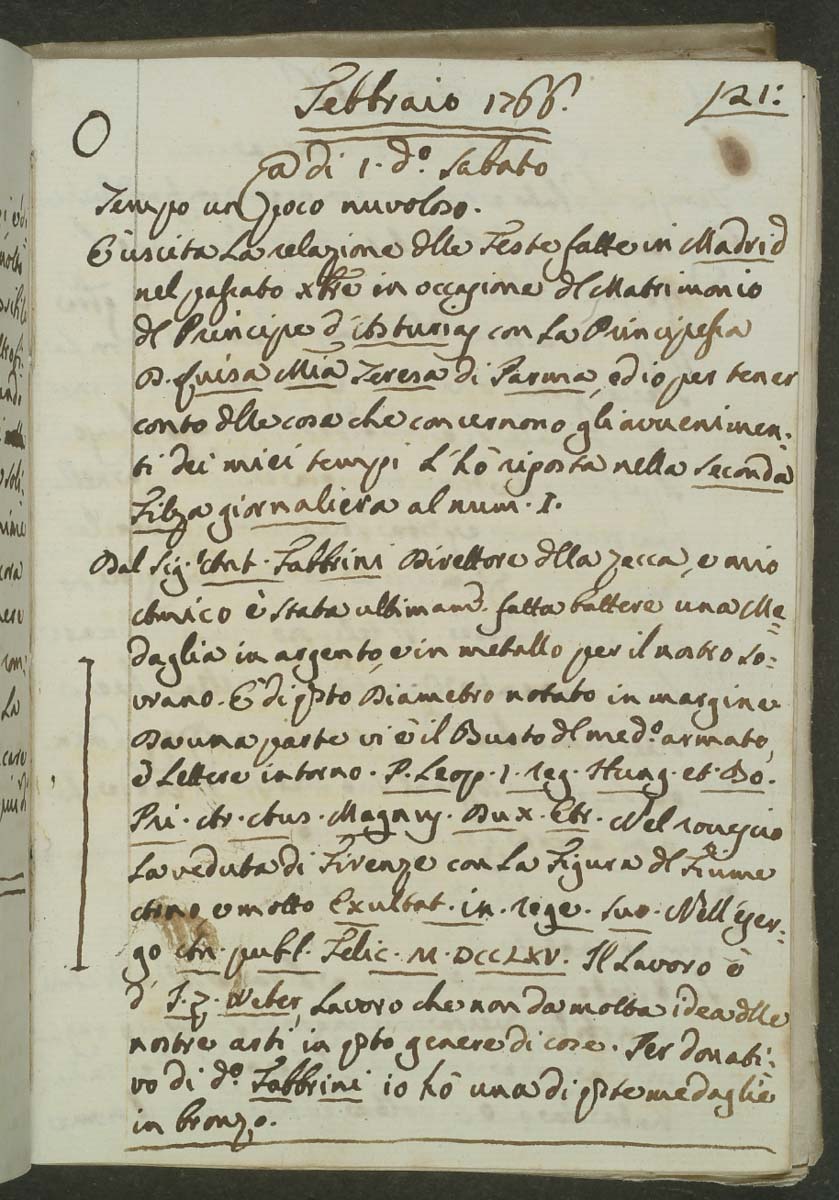 Febbraio 1766.
121:
A di 1. d.º Sabato
Tempo un poco nuvoloso.
È uscita La relazione dlle Feste fatte in Madrid
nel passato Xbre in occasione dl Matrimonio
dl Principe d'Asturias con La Principessa
D. Luisa Mia Teresa di Parma, ed io per tener
conto dlle cose che concernono gli avvenimen-
ti dei miei tempi l'hò riposta nella Seconda
Filza giornaliera al num. I.
Dal Sig.r Ant. Fabbrini Direttore dlla zecca, e mio
Amico è stata ultimam.e fatta battere una Me=
daglia in argento, e in metallo per il nostro So=
vrano. È di qsto Diametro notato in margine
Da una parte vi è il Busto dl med.º armato,
e Lettere intorno. P. Leop. I. reg. Hung. et. Bo.
Pri. Ar. Aus. Magnus. Dux. Etr. Nel rovescio
La veduta di Firenze con La Figura dl Fiume
Arno, e motto Exultat. in. rege. suo. Nell'eser-
go An. publ. Felic. M. DCCLXV. Il Lavoro è
d' I. Z. Weber, Lavoro che non da molta idea dlle
nostre arti in qsto genere di cose. Per donati=
vo di d.º Fabbrini io hò una di qste medaglie
in bronzo.